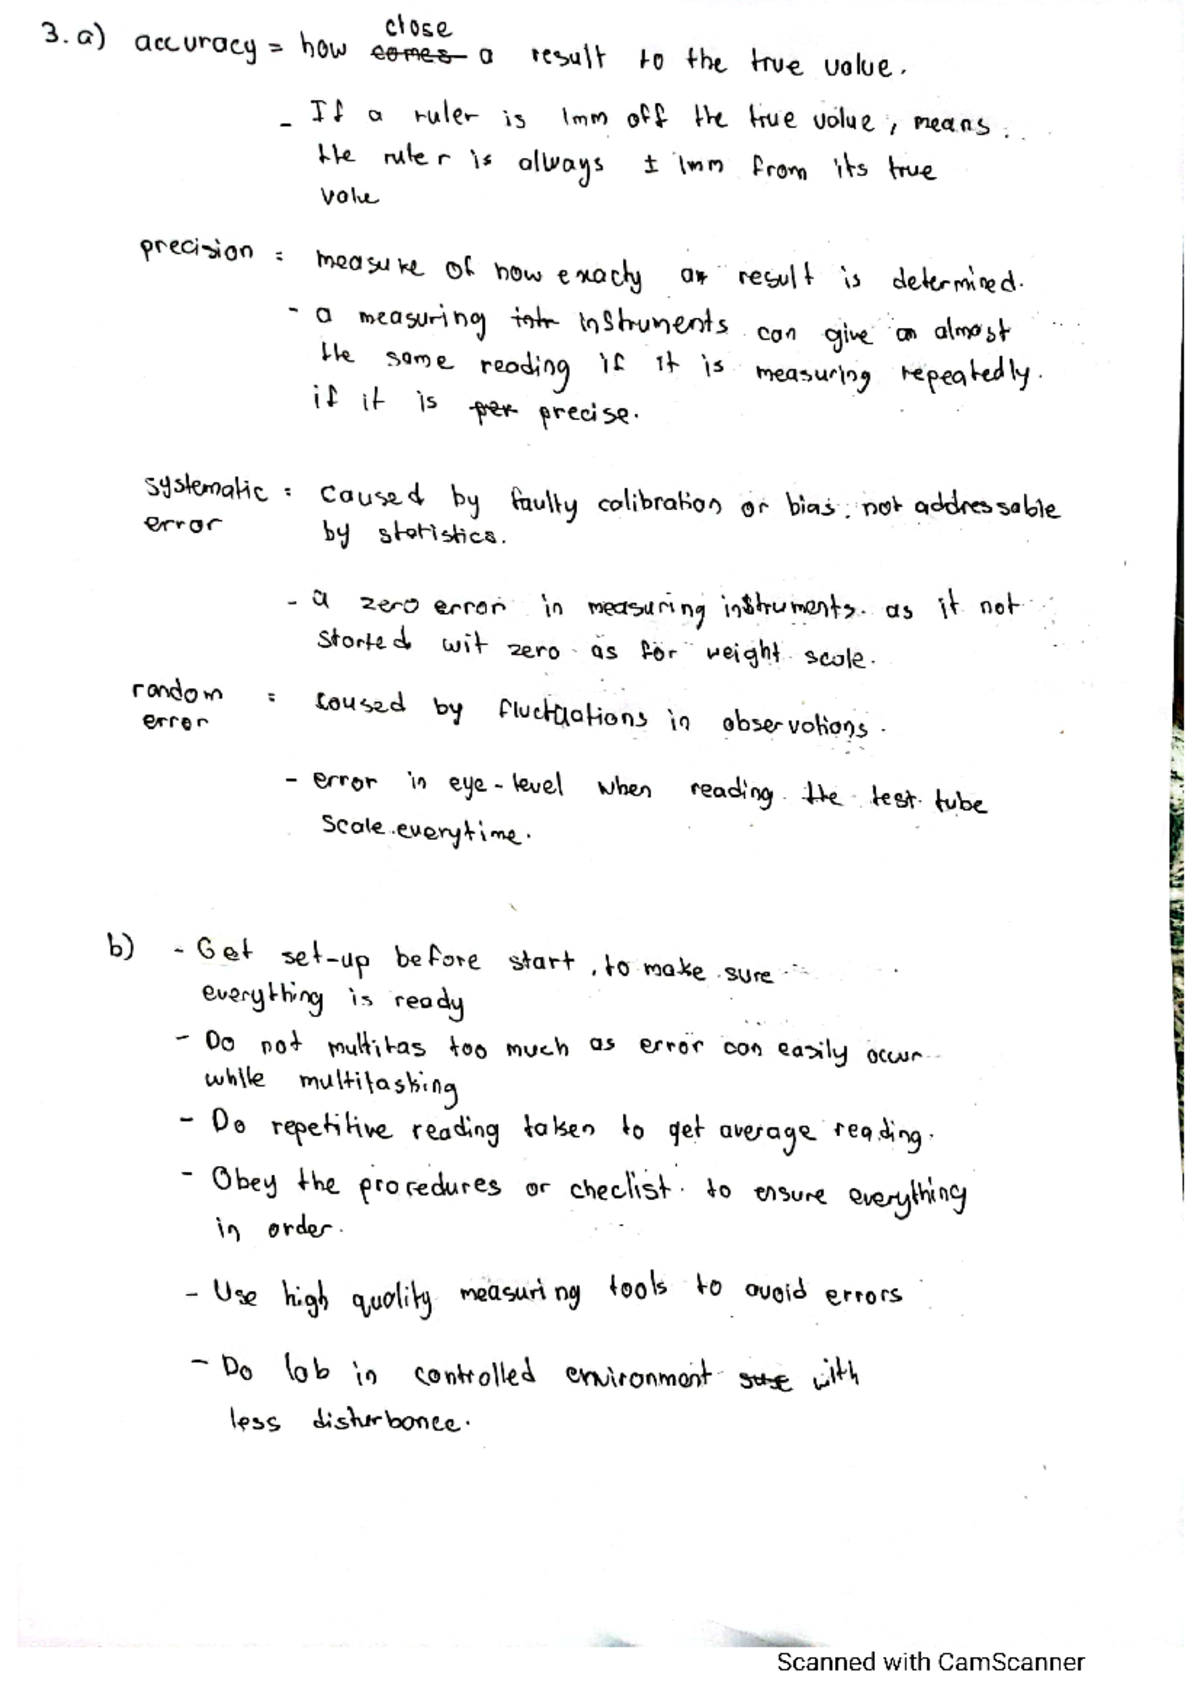 close
3. a) accuracy = how comes a result to the true value.
- If a ruler is 1mm off the true value, means
the ruler is always ± 1mm from its true
value
precision = measure of how exacty a result is determined.
- a measuring intr instruments can give an almost
the same reading if it is measuring repeatedly.
if it is per precise.
systematic = caused by faulty calibration or bias. not addressable
error by statistics.
- a zero error in measuring instruments. as it not
started wit zero as for weight scale.
random = caused by fluctuations in observations.
error
- error in eye-level when reading the test tube
scale everytime.
b) - Get set-up before start, to make sure
everything is ready
- Do not multitas too much as error can easily occur
while multitasking
- Do repetitive reading taken to get average reading.
- Obey the procedures or checlist to ensure everything
in order.
- Use high quality measuring tools to avoid errors
- Do lab in controlled environment with
less disturbance.
Scanned with CamScanner